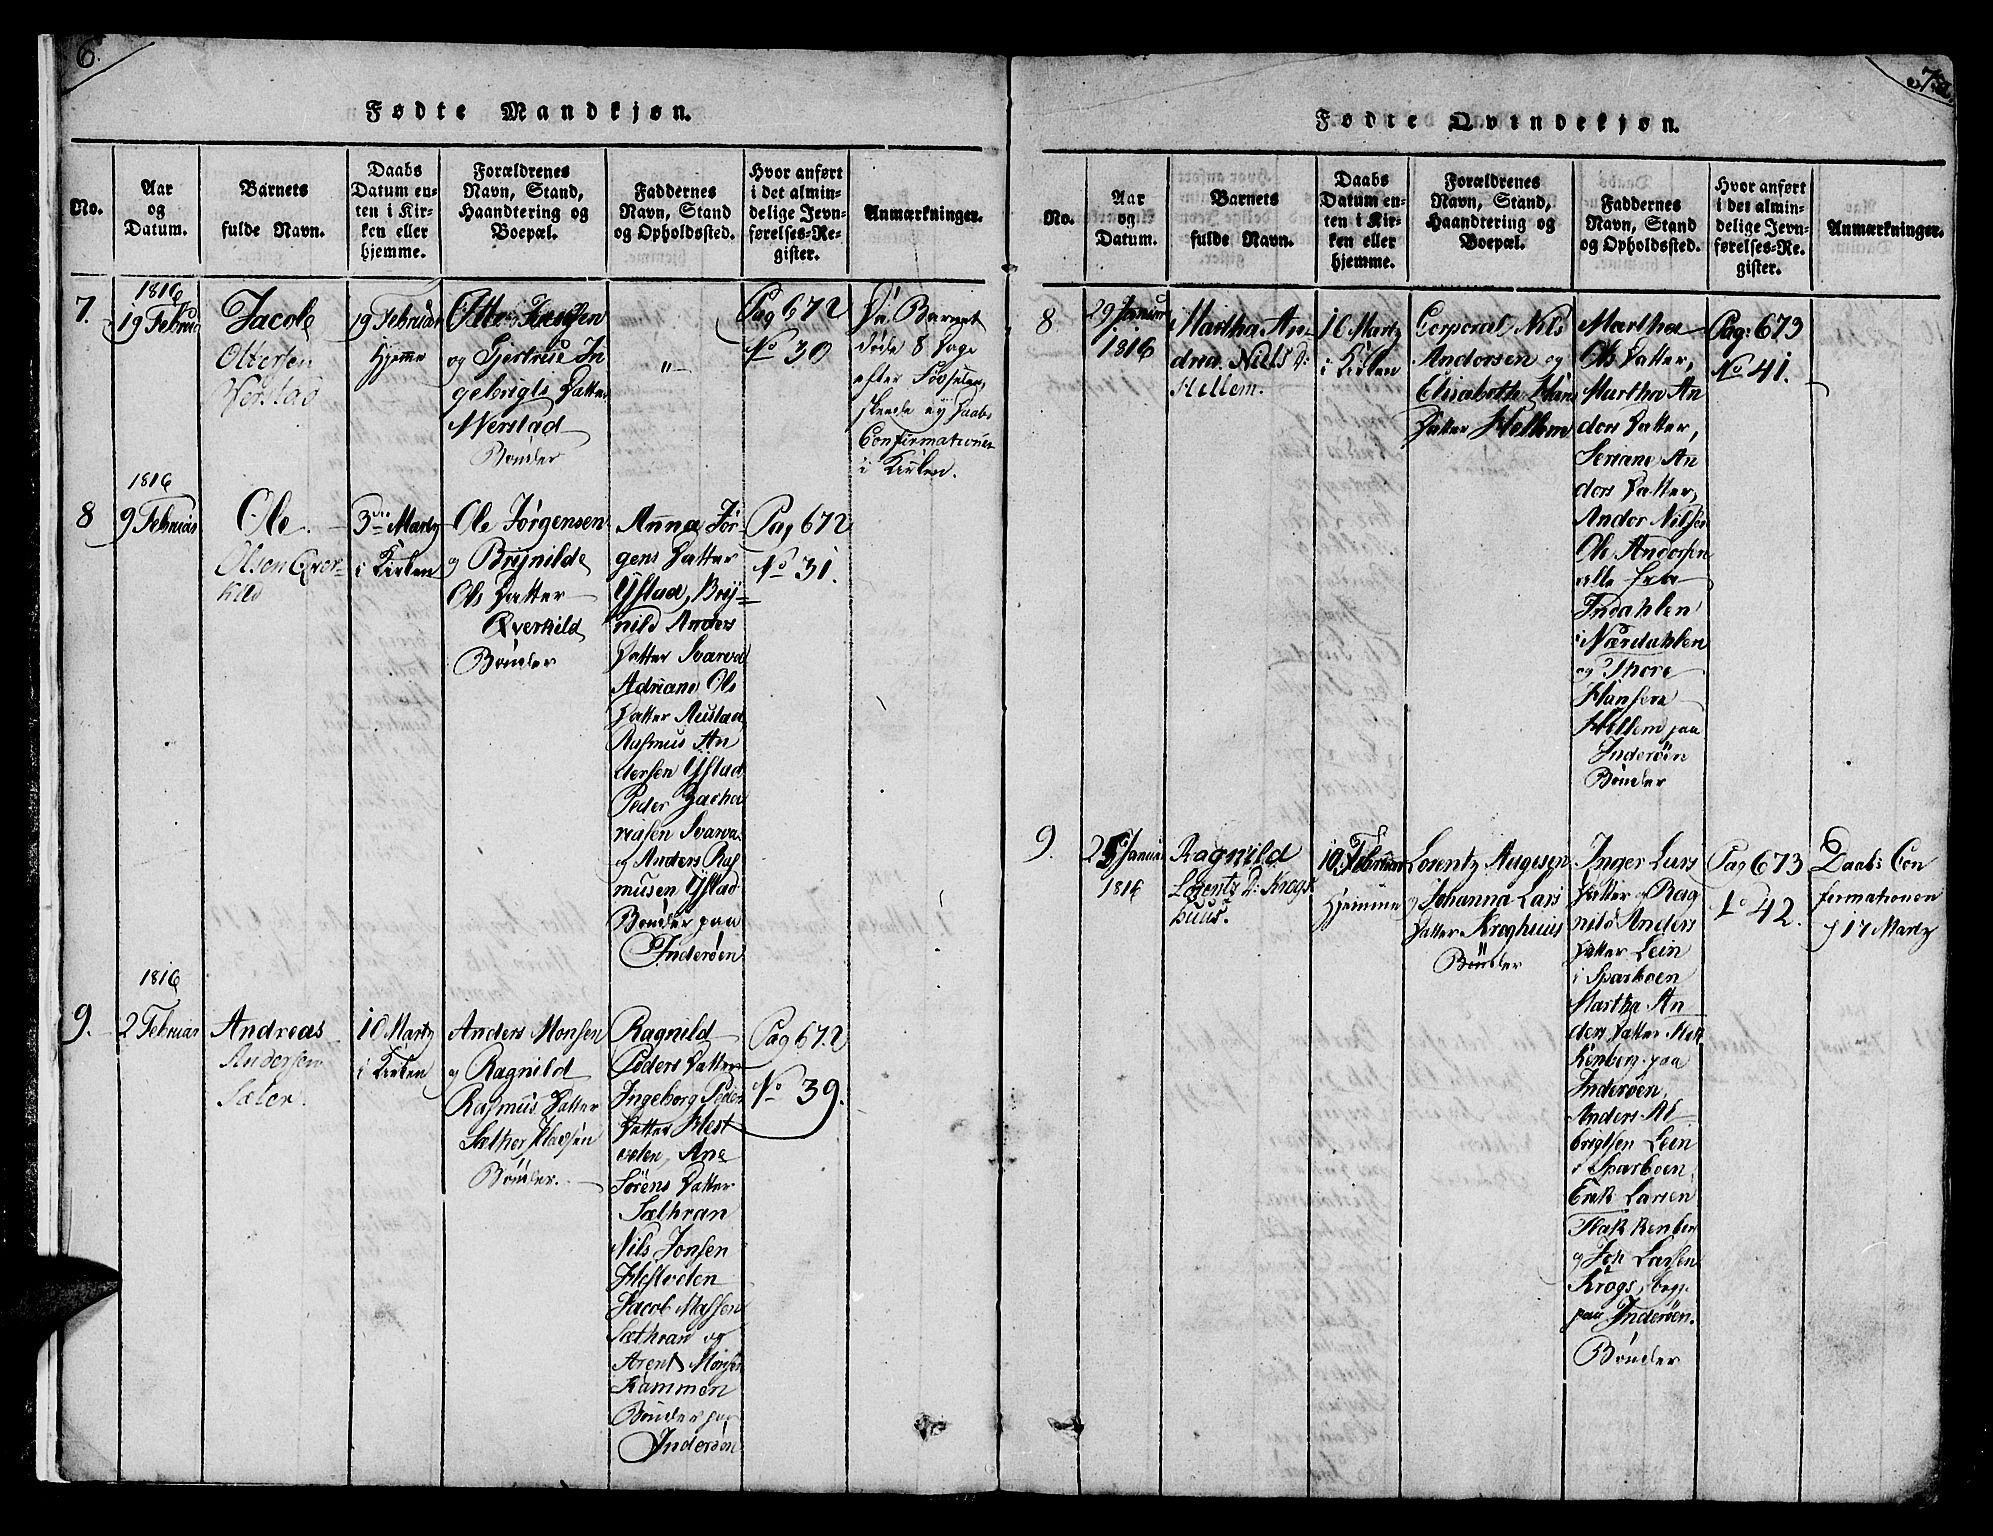 6.
Fødte Mandkjøn.
No.
Aar
og
Datum.
Barnets
fulde Navn.
Daabs
Datum en-
ten i Kir-
ken eller
hjemme.
Forældrenes
Navn, Stand,
Haandtering og
Boepæl.
Faddernes
Navn, Stand
og Opholdssted.
Hvor anført
i det almin-
delige Jevn-
førelses-Re-
gister.
Anmærkninger.
7.
1816
19 Februar
Jacob
Ottersen
Werstad
19 Februar
Hjemme
og Gjertrud In
gebrigts Datter
Werstad
Bønder
"
Pag 672
No 30
Da Barnet
døde 8 Dage
efter Fødselen,
skeede ey Daabs
Confirmationen
i Kirken.
8
1816
9 Februar
Ole
Olsen Qver-
kild
3die Martz
i Kirken
Ole Jørgensen
og Brynilde
Ols Datter
Qverkild
Bønder
Anna Jør-
gens Datter
Ystad, Bry=
nild Anders
Datter Svarva
Adriane Ols
Datter Austad
Rasmus An
dersen Ystad
Peder Zacha
riasen Svarva
og Anders Ras
musen Ystad
Bønder paa
Inderøen
Pag 672
No 31.
9.
1816
2 Februar
Andreas
Andersen
Sæter.
10 Martz
i Kirken
Anders Monsen
og Ragnild
Rasmus Datter
Bønder.
Ragnild
Peders Datter
Ingeborg Peder
Datter Hest
Ane
Sörens Datter
Sæthran
Nils Jonsen
Jacob Massen
Sæthran og
Arent Monsen
Kammen
Bønder paa
Inderøen
Pag 672
No 39.
7.
Fødte Qvindekjøn.
No.
Aar
og
Datum.
Barnets
fulde Navn.
Daabs
Datum en-
ten i Kir-
ken eller
hjemme.
Forældrenes
Navn, Stand,
Haandtering og
Boepæl.
Faddernes
Navn, Stand
og Opholdssted.
Hvor anført
i det almin-
delige Jevn-
førelses-Re-
gister.
Anmærkninger.
8
29 Januar
1816
Martha An-
drea Niels D:
Hellem.
10 Martz
i Kirken
Corporal Nils
Andorsen og
Elisabeth Hans
Datter Hellem
Martha
Ols Datter,
Martha An
dors Datter,
Seriane An
dors Datter,
Andor Nilsen
Ole Andorsen
alle fra
Indahlen
i Værdahlen
og Thore
Hansen
Hellem paa
Inderöen
Bønder
Pag: 673
No 41.
9.
25 Januar
1816
Ragnild
Lorentz D: Krogs
huus.
10 Februar
Hjemme
Lorentz Augesen
og Johanna Lars
Datter Kroghuus
Bønder
Inger Lars
Datter og Rag
nild Anders
Datter Lein
i Sparboen
Martha An
ders Datter Flak
kenberg paa
Inderøen,
Anders Al
brigtsen Lein
i Sparboen
Erik Larsen
Flakkenber
og Jon Larsen
Krogs, begge
paa Inderøen.
Bønder
Pag 673
No 42.
Daabs Con
firmationen
d 17 Martz